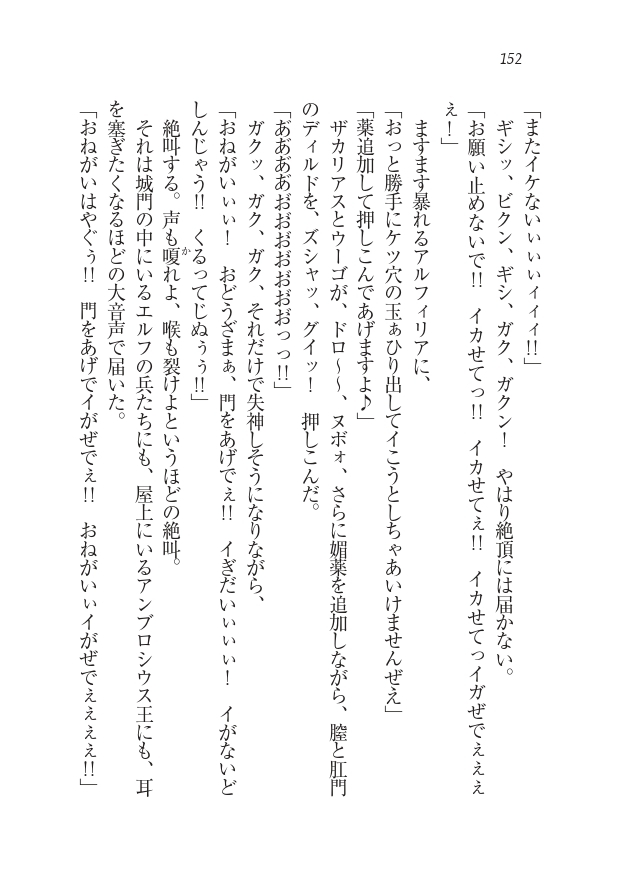 152
「またイケないぃぃぃィィィ!!」
ギシッ、ビクン、ギシ、ガク、ガクン！　やはり絶頂には届かない。
「お願い止めないで!!　イカせてっ!!　イカせてぇ!!　イカせてっイガぜでぇぇぇ
ぇ！」
ますます暴れるアルフィリアに、
「おっと勝手にケツ穴の玉ぁひり出してイこうとしちゃあいけませんぜえ」
「薬追加して押しこんであげますよ♪」
ザカリアスとウーゴが、ドロ～～、ヌボォ、さらに媚薬を追加しながら、膣と肛門
のディルドを、ズシャッ、グイッ！　押しこんだ。
「ああああおおおおおおおっっ!!」
ガクッ、ガク、ガク、それだけで失神しそうになりながら、
「おねがいぃぃ！　おどうざまぁ、門をあげでぇ!!　イぎだいぃぃぃ！　イがないど
しんじゃう!!　くるってじぬぅぅ!!」
絶叫する。声も嗄れよ、喉も裂けよというほどの絶叫。
それは城門の中にいるエルフの兵たちにも、屋上にいるアンブロシウス王にも、耳
を塞ぎたくなるほどの大音声で届いた。
「おねがいはやぐぅ!!　門をあげでイがぜでぇ!!　おねがいぃイがぜでぇぇぇぇ!!」